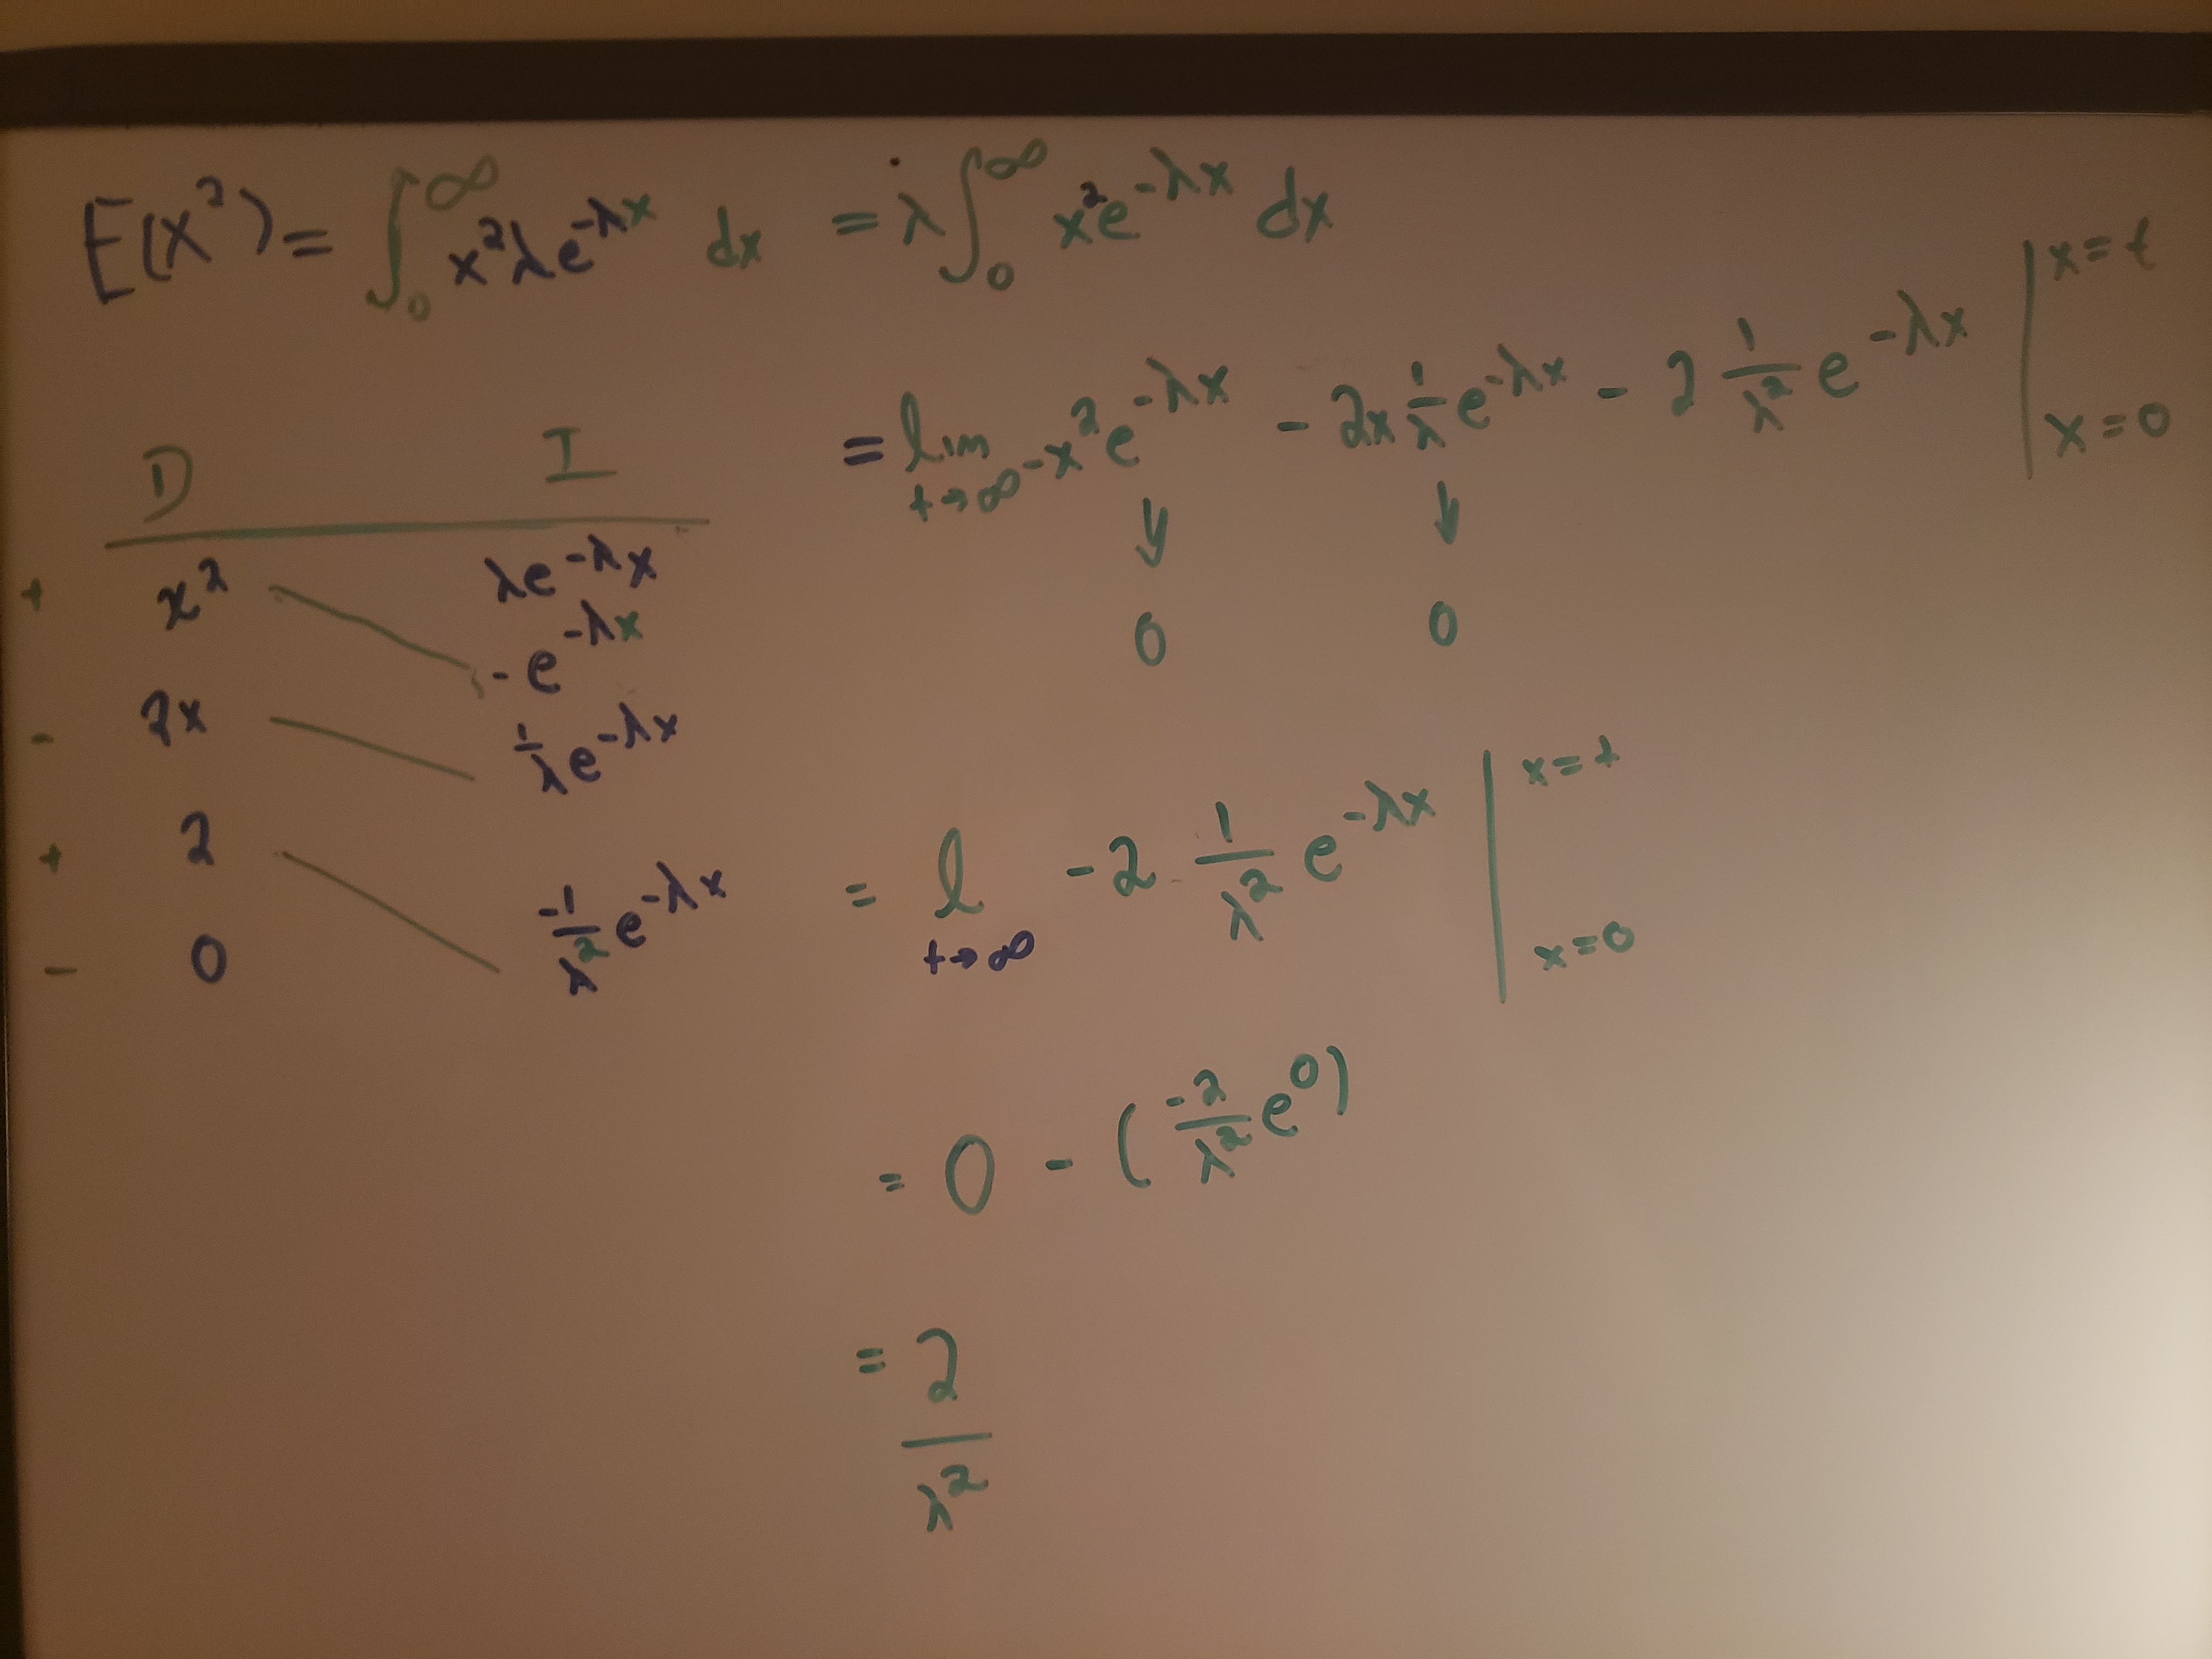 E(X²) = ∫₀^∞ x²λe^(-λx) dx = λ∫₀^∞ x²e^(-λx) dx
= lim t→∞ -x²e^(-λx) - 2x 1/λ e^(-λx) - 2 1/λ² e^(-λx) | x=t x=0
↓ ↓
0 0
D I
+ x² λe^(-λx)
-e^(-λx)
- 2x 1/λ e^(-λx)
+ 2 -1/λ² e^(-λx)
- 0
= l t→∞ -2 1/λ² e^(-λx) | x=t x=0
= 0 - (-2/λ² e⁰)
= 2/λ²